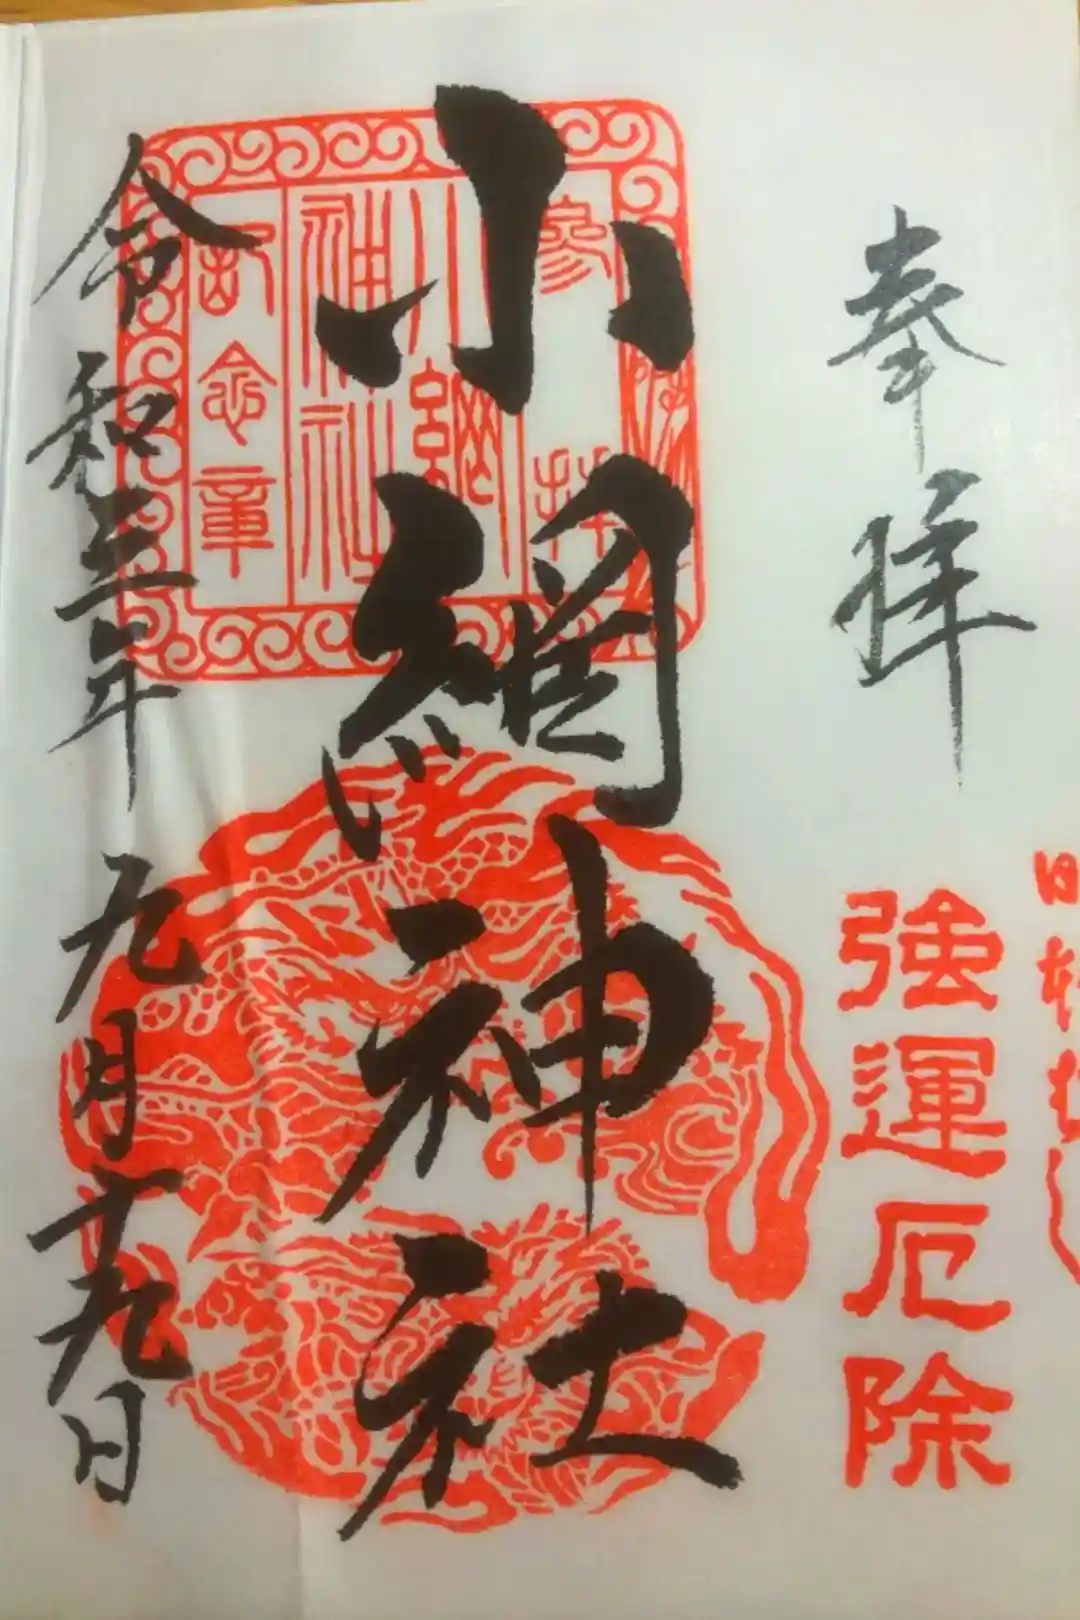 奉拝
強運厄除
小網神社
参拝
小網
神社
記念章
令和三年九月十九日